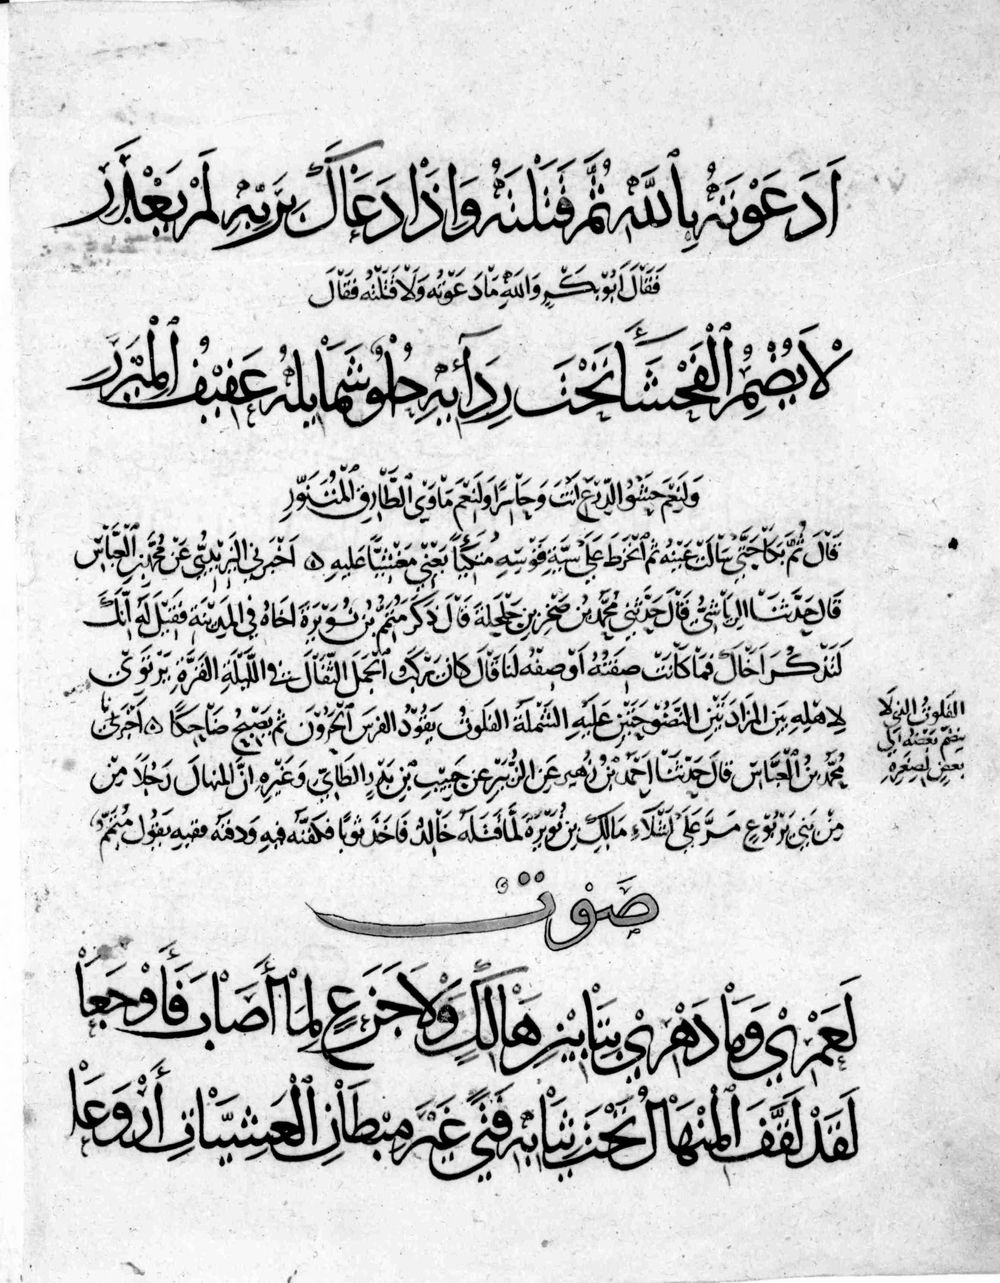 أَدَعَوْتَهُ بِاللَّهِ ثُمَّ قَتَلْتَهُ وَإِذَا دَعَاكَ بِرَبِّهِ لَمْ يَغْدِرِ
فَقَالَ أَبُو بَكْرٍ وَاللَّهِ مَا دَعَوْتُهُ وَلَا قَتَلْتُهُ فَقَالَ
لَا يُضْمِرُ الْفَحْشَاءَ تَحْتَ رِدَائِهِ حُلْوٌ شَمَائِلُهُ عَفِيفُ الْمِئْزَرِ
وَلَنِعْمَ حَشْوُ الدِّرْعِ أَنْتَ وَحَاسِرًا وَلَنِعْمَ مَأْوَى الطَّارِقِ الْمُتَنَوِّرِ
قَالَ ثُمَّ بَكَا حَتَّى سَالَتْ عَيْنُهُ ثُمَّ انْخَرَطَ عَلَى سِيَةِ قَوْسِهِ مُتَّكِئًا يَعْنِي مَغْشِيًّا عَلَيْهِ ۝ أَخْبَرَنِي الْيَزِيدِيُّ عَنْ مُحَمَّدِ بْنِ الْعَبَّاسِ
قَالَ حَدَّثَنَا الرِّيَاشِيُّ قَالَ حَدَّثَنِي مُحَمَّدُ بْنُ صَخْرِ بْنِ خَلْخَلَةَ قَالَ ذَكَرَ مُتَمِّمُ بْنُ نُوَيْرَةَ أَخَاهُ فِي الْمَدِينَةِ فَقِيلَ لَهُ إِنَّكَ
لَتَذْكُرُ أَخَاكَ فَمَا كَانَتْ صِفَتُهُ أَوْ صِفْهُ لَنَا قَالَ كَانَ يَرْكَبُ الْجَمَلَ الثَّفَالَ فِي اللَّيْلَةِ الْقَرَّةِ يَرْتَوِي
لِأَهْلِهِ بَيْنَ الْمَزَادَتَيْنِ النَّضُوحَتَيْنِ عَلَيْهِ الشَّمْلَةُ الْفَلُوتُ يَقُودُ الْفَرَسَ الْحَرُونَ ثُمَّ يُصْبِحُ ضَاحِكًا ۝ أَخْبَرَنِي
مُحَمَّدُ بْنُ الْعَبَّاسِ قَالَ حَدَّثَنَا أَحْمَدُ بْنُ زُهَيْرٍ عَنِ الزُّبَيْرِ عَنْ حَبِيبِ بْنِ بَدْرٍ الطَّائِيِّ وَغَيْرِهِ أَنَّ الْمِنْهَالَ رَجُلًا مِنْ
مِنْ بَنِي يَرْبُوعٍ مَرَّ عَلَى أَشْلَاءِ مَالِكِ بْنِ نُوَيْرَةَ لَمَّا قَتَلَهُ خَالِدٌ فَأَخَذَ ثَوْبًا فَكَفَّنَهُ فِيهِ وَدَفَنَهُ فَفِيهِ يَقُولُ مُتَمِّمٌ
الفلوت التي لا
ينضم بعضها إلى
بعض لصغره
صَوْتٌ
لَعَمْرِي وَمَا دَهْرِي بِتَأْبِينِ هَالِكٍ وَلَا جَزَعٍ لِمَا أَصَابَ فَأَوْجَعَا
لَقَدْ لَفَّفَ الْمِنْهَالُ تَحْتَ ثِيَابِهِ فَتًى غَيْرَ مِبْطَانِ الْعَشِيَّاتِ أَرْوَعَا